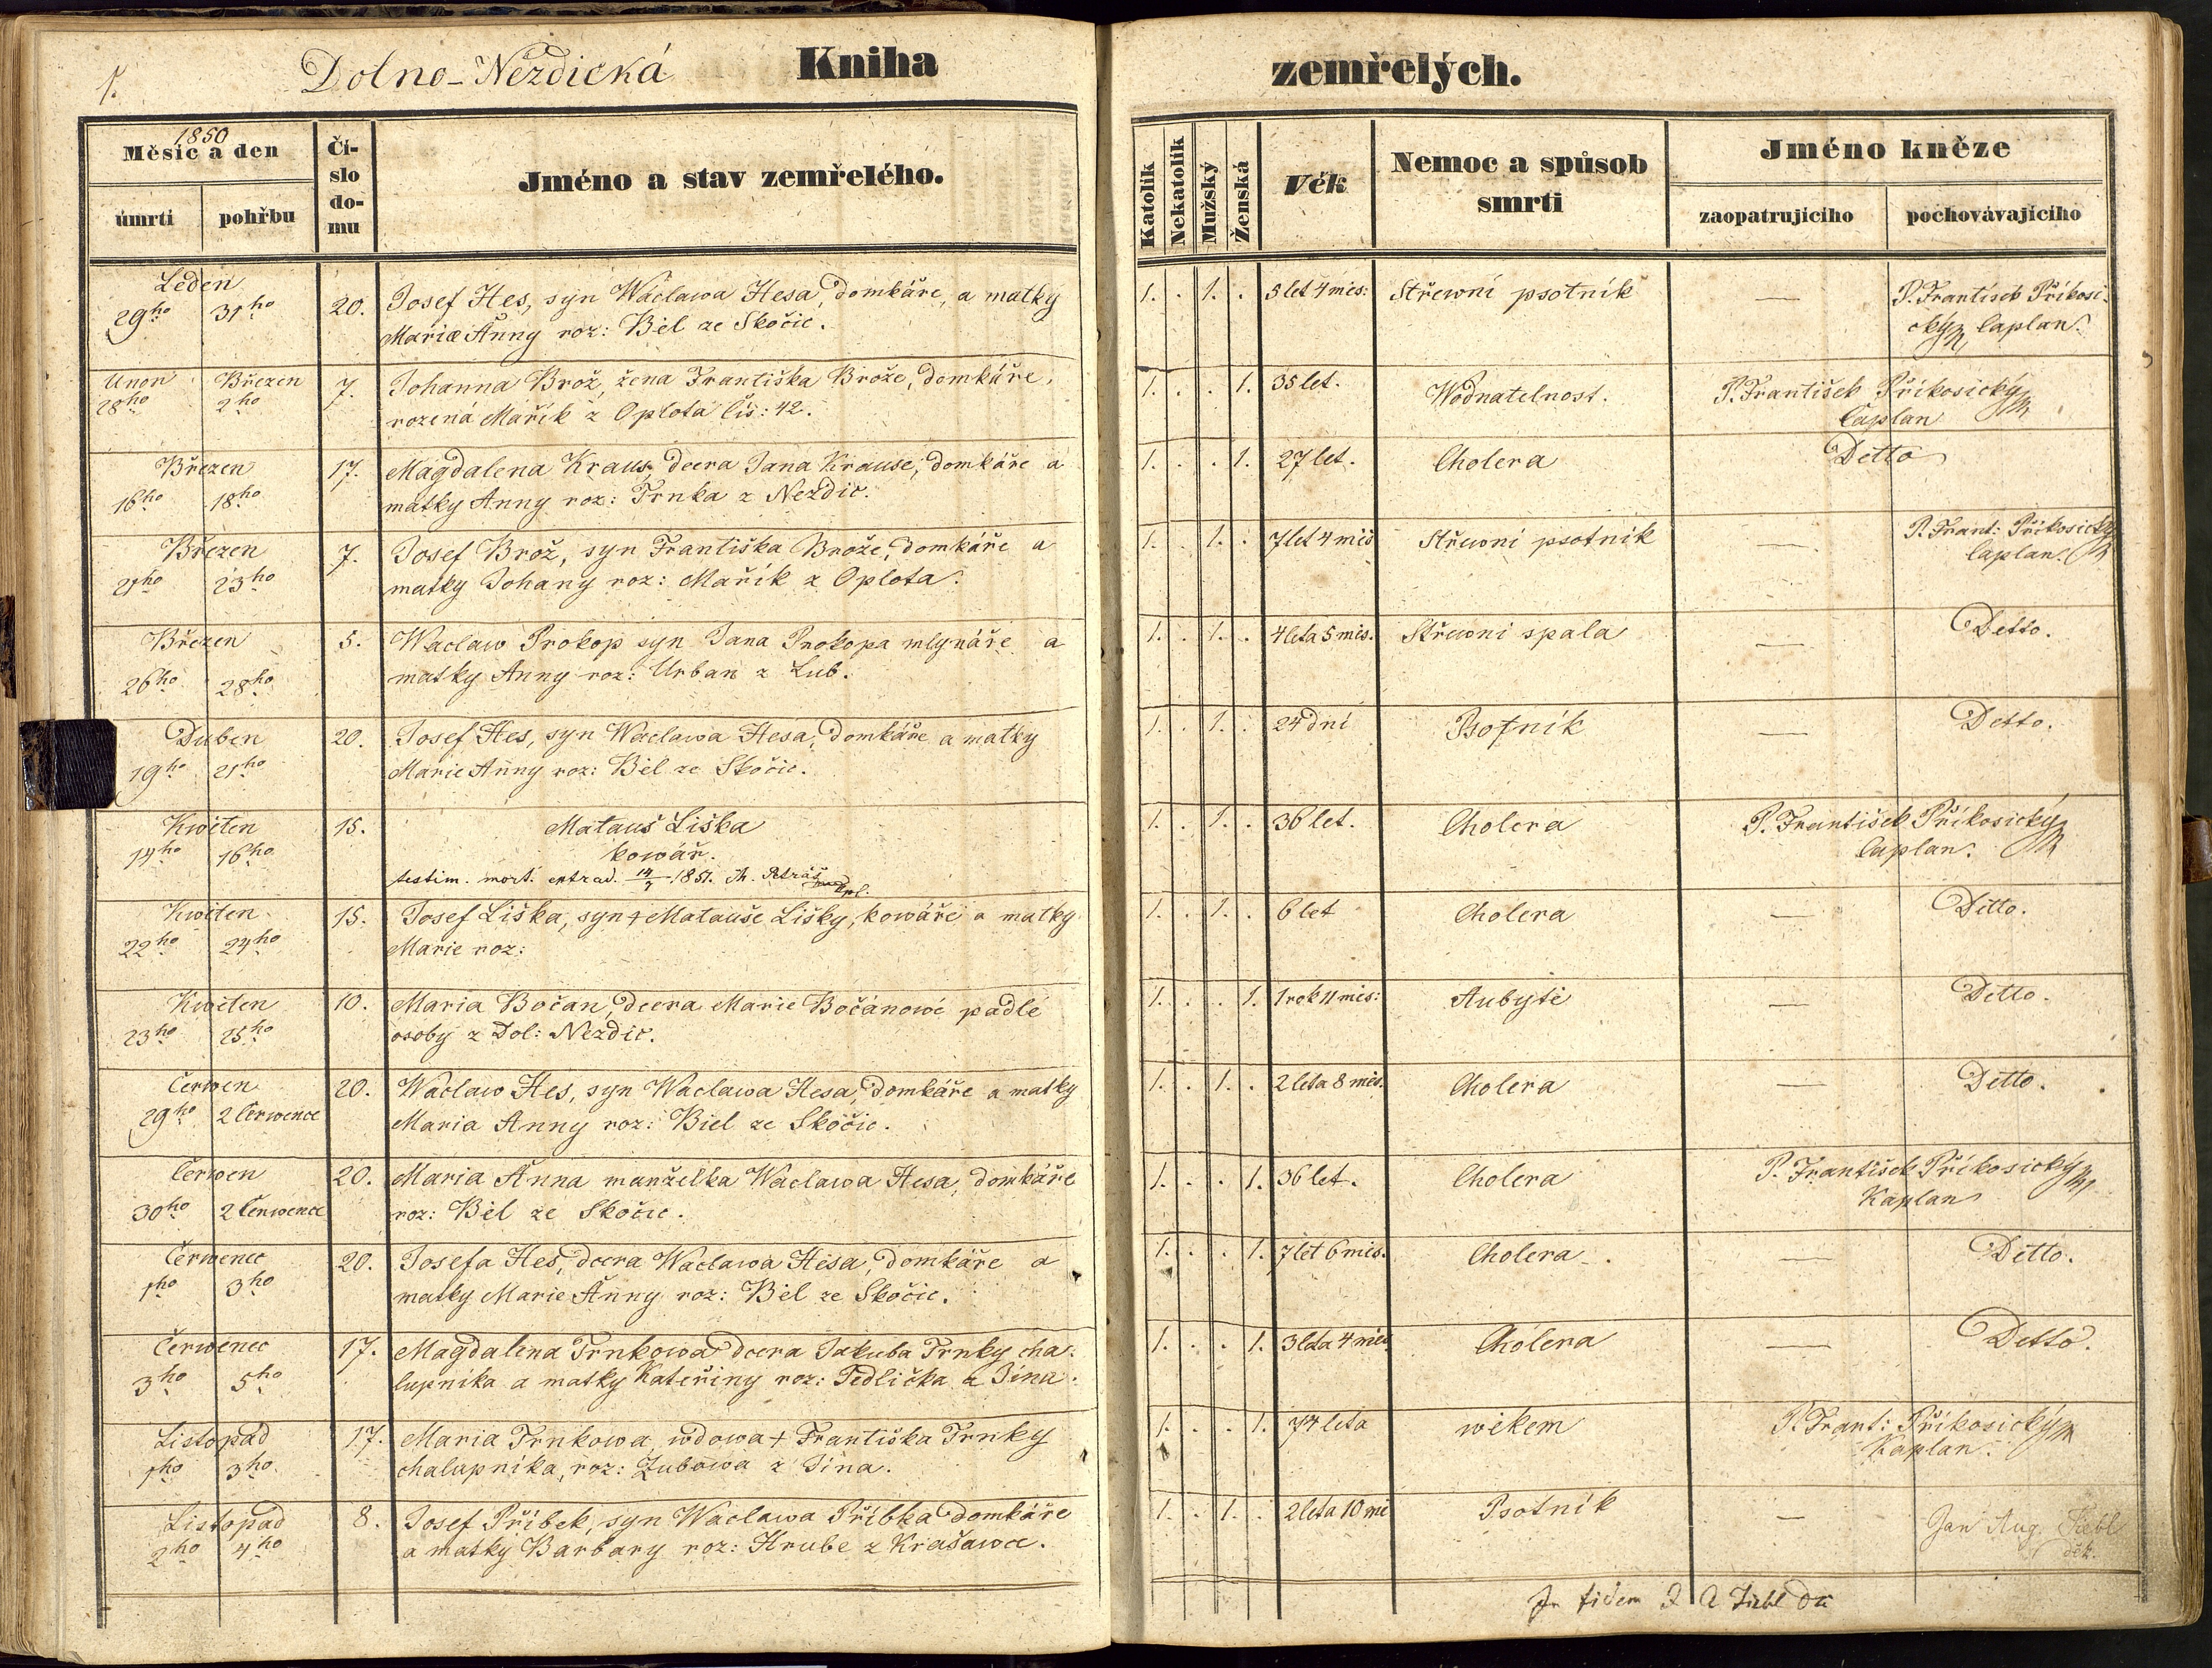 1.
Dolno-Nezdická Kniha zemřelých.
1850
Měsíc a den
úmrtí pohřbu
Čí-
slo
do-
mu
Jméno a stav zemřelého.
Katolík
Nekatolík
Mužský
Ženská
Věk
Nemoc a spůsob
smrti
Jméno kněze
zaopatrujícího pochovávajícího
Leden
29ho 31ho 20. Josef Hes, syn Wáclawa Hesa, domkáře, a matky
Marie Anny roz: Bèl ze Skočic.
1. . 1. . 5 let 4 měs: Střewní psotník — P. František Příkosi-
cký Caplan.
Unor Březen
28ho 2ho 7. Johanna Brož, žena Františka Brože, domkáře,
rozená Mařík z Oplota čís: 42.
1. . . 1. 35 let. Wodnatelnost. P. František Příkosický
Caplan
Březen
16ho 18ho 17. Magdalena Kraus, dcera Jana Krause, domkáře a
matky Anny roz: Trnka z Nezdic.
1. . . 1. 27 let. Cholera Detto
Březen
21ho 23ho 7. Josef Brož, syn Františka Brože, domkáře a
matky Johany roz: Mařík z Oplota.
1. . 1. . 7 let 4 měs Střewní psotník — P. Frant: Příkosický
Caplan.
Březen
26ho 28ho 5. Waclaw Prokop syn Jana Prokopa mlynáře a
matky Anny roz: Urban z Lub.
1. . 1. . 4 leta 5 měs. Střewni spala — Detto.
Duben
19ho 21ho 20. Josef Hes, syn Waclawa Hesa, domkáře a matky
Marie Anny roz: Bèl ze Skočic.
1. . 1. . 24 dní Psotník — Detto.
Kwěten
14ho 16ho 15. Matauš Liška
kowář.
testim. mort. extrad. 14/7 1851. Petráš Cpl.
1. . 1. . 36 let. Cholera P. František Příkosický
Caplan.
Kwěten
22ho 24ho 15. Josef Liška, syn + Matauše Lišky, kowáře a matky
Marie roz:
1. . 1. . 6 let Cholera — Ditto.
Kwěten
23ho 25ho 10. Maria Bočan, dcera Marie Bočánowé padlé
osoby z Dol: Nezdic.
1. . . 1. 1 rok 11 měs: Aubytě — Detto.
Čerwen
29ho 2 Čerwence 20. Wáclaw Hes, syn Waclawa Hesa, domkáře a matky
Maria Anny roz: Biel ze Skočic.
1. . 1. . 2 leta 8 měs. Cholera — Detto.
Čerwen
30ho 2 Čerwence 20. Maria Anna manželka Waclawa Hesa, domkáře
roz: Bèl ze Skočic.
1. . . 1. 36 let. Cholera P. František Příkosický
Kaplan
Čerwenec
1ho 3ho 20. Josefa Hes, dcera Waclawa Hesa, domkáře a
matky Marie Anny roz: Bèl ze Skočic.
1. . . 1. 7 let 6 měs. Cholera . — Detto.
Čerwenec
3ho 5ho 17. Magdalena Trnkowa dcera Jakuba Trnky cha-
lupníka a matky Kateřiny roz: Jedlička z Jína.
1. . . 1. 3 leta 4 měs. Cholera — Detto.
Listopad
1ho 3ho 17. Maria Trnkowa, wdowa + Františka Trnky
chalupníka, roz: Zubowa z Jína.
1. . . 1. 74 leta wěkem P. Frant: Příkosický
Kaplan.
Listopad
2ho 4ho 8. Josef Příbek, syn Waclawa Příbka domkáře
a matky Barbary roz: Hrube z Krašawce.
1. . 1. . 2 leta 10 mě Psotník — Jan Aug.
děk.
In fidem